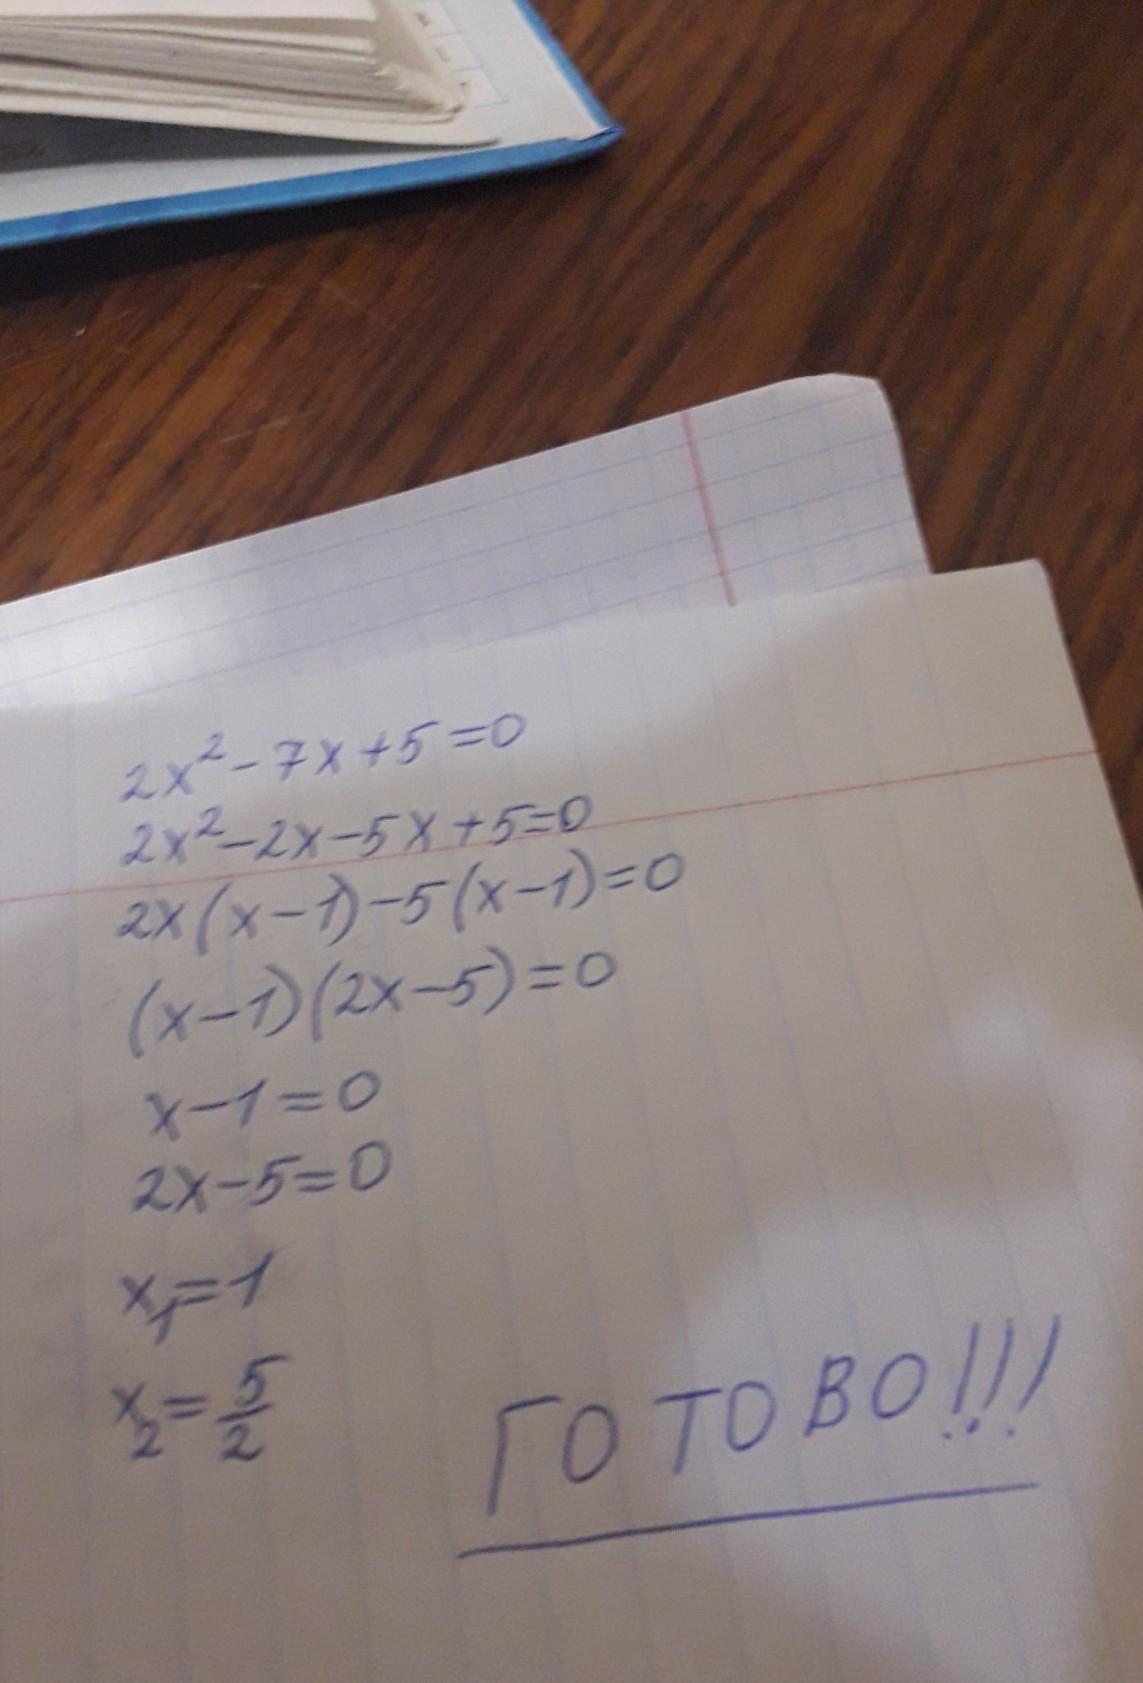 2x²-7x+5=0
2x²-2x-5x+5=0
2x(x-1)-5(x-1)=0
(x-1)(2x-5)=0
x-1=0
2x-5=0
x₁=1
x₂=5/2
ГОТОВО!!!